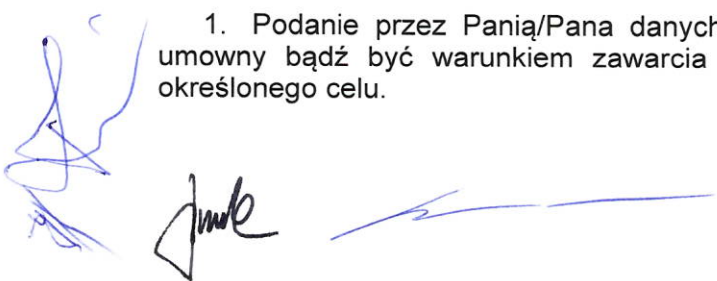 1. Podanie przez Panią/Pana danych
umowny bądź być warunkiem zawarcia
określonego celu.